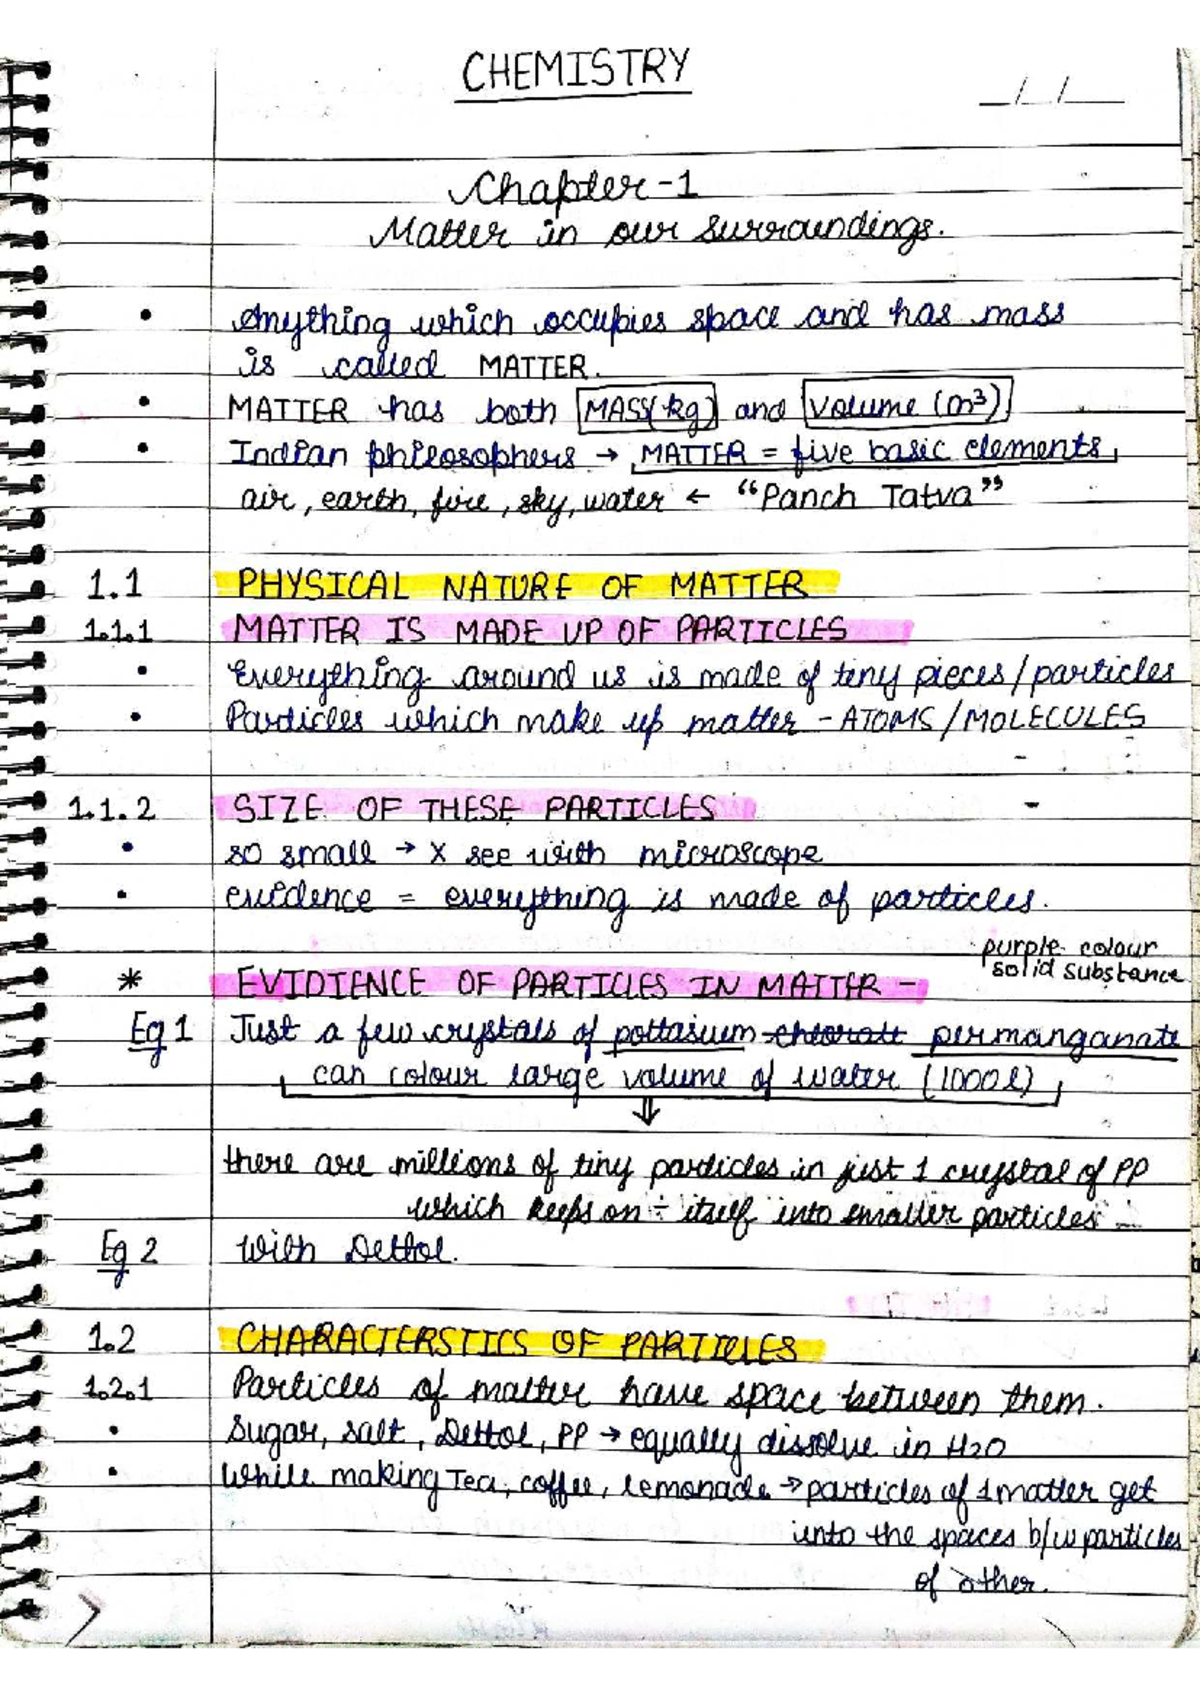 CHEMISTRY
_/_/__
Chapter-1
Matter in our surroundings.
• Anything which occupies space and has mass
is called MATTER.
• MATTER has both MASS(kg) and volume (m³)
• Indian philosophers → MATTER = five basic elements
air, earth, fire, sky, water ← “Panch Tatva”
1.1 PHYSICAL NATURE OF MATTER
1.1.1 MATTER IS MADE UP OF PARTICLES
• Everything around us is made of tiny pieces/particles
• Particles which make up matter - ATOMS/MOLECULES
1.1.2 SIZE OF THESE PARTICLES
• so small → x see with microscope
• evidence = everything is made of particles.
purple colour
solid substance
* EVIDIENCE OF PARTICLES IN MATTER -
Eg 1 Just a few crystals of pottasium chlorate permanganate
can colour large volume of water (1000l)
⇓
there are millions of tiny particles in just 1 crystal of PP
which keeps on ÷ itself into smaller particles
Eg 2 with Dettol.
1.2 CHARACTERSTICS OF PARTICLES
1.2.1 Particles of matter have space between them.
• Sugar, salt, Dettol, PP → equally dissolve in H2O
• While making Tea, coffee, lemonade → particles of 1 matter get
into the spaces b/w particles
of other.